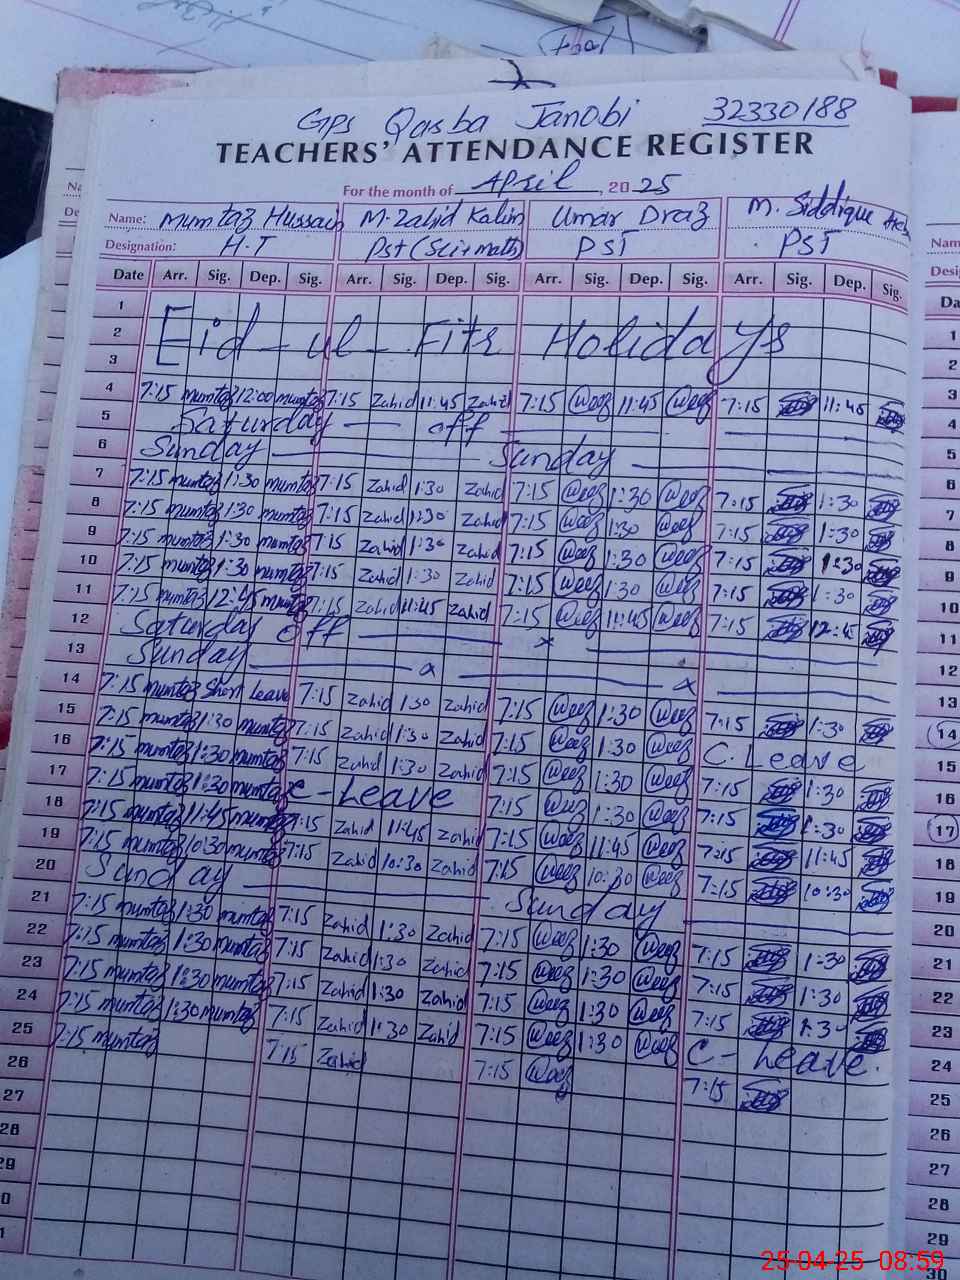 Gps Qasba Janobi 32330188
TEACHERS' ATTENDANCE REGISTER
For the month of April, 2025
Name: Mumtaz Hussain M. Zahid Kalim Umar Draz M. Siddique
Designation: H.T Pst (Sci+math) PST PST
Date Arr. Sig. Dep. Sig. Arr. Sig. Dep. Sig. Arr. Sig. Dep. Sig. Arr. Sig. Dep. Sig.
1
2 Eid-ul-Fitr Holidays
3
4 7:15 mumtaz 12:00 mumtaz 7:15 Zahid 11:45 Zahid 7:15 11:45 7:15 11:45
5 Saturday — off
6 Sunday Sunday
7 7:15 mumtaz 1:30 mumtaz 7:15 Zahid 1:30 Zahid 7:15 1:30 7:15 1:30
8 7:15 mumtaz 1:30 mumtaz 7:15 Zahid 1:30 Zahid 7:15 1:30 7:15 1:30
9 7:15 mumtaz 1:30 mumtaz 7:15 Zahid 1:30 Zahid 7:15 1:30 7:15 1:30
10 7:15 mumtaz 1:30 mumtaz 7:15 Zahid 1:30 Zahid 7:15 1:30 7:15 1:30
11 7:15 mumtaz 12:45 mumtaz 7:15 Zahid 11:45 Zahid 7:15 11:45 7:15 12:45
12 Saturday off x
13 Sunday x x
14 7:15 mumtaz Short Leave 7:15 Zahid 1:30 Zahid 7:15 1:30 7:15 1:30
15 7:15 mumtaz 1:30 mumtaz 7:15 Zahid 1:30 Zahid 7:15 1:30 C. Leave
16 7:15 mumtaz 1:30 mumtaz 7:15 Zahid 1:30 Zahid 7:15 1:30 7:15 1:30
17 7:15 mumtaz 1:30 mumtaz C-Leave 7:15 1:30 7:15 1:30
18 7:15 mumtaz 11:45 mumtaz 7:15 Zahid 11:45 Zahid 7:15 11:45 7:15 11:45
19 7:15 mumtaz 10:30 mumtaz 7:15 Zahid 10:30 Zahid 7:15 10:30 7:15 10:30
20 Sunday Sunday
21 7:15 mumtaz 1:30 mumtaz 7:15 Zahid 1:30 Zahid 7:15 1:30 7:15 1:30
22 7:15 mumtaz 1:30 mumtaz 7:15 Zahid 1:30 Zahid 7:15 1:30 7:15 1:30
23 7:15 mumtaz 1:30 mumtaz 7:15 Zahid 1:30 Zahid 7:15 1:30 7:15 1:30
24 7:15 mumtaz 1:30 mumtaz 7:15 Zahid 1:30 Zahid 7:15 1:30 C-Leave.
25 7:15 mumtaz 7:15 Zahid 7:15 7:15
26
27
28
29
0
1
Nam
Desig
Da
1
2
3
4
5
6
7
8
9
10
11
12
13
14
15
16
17
18
19
20
21
22
23
24
25
26
27
28
29
30
25-04-25 08:59